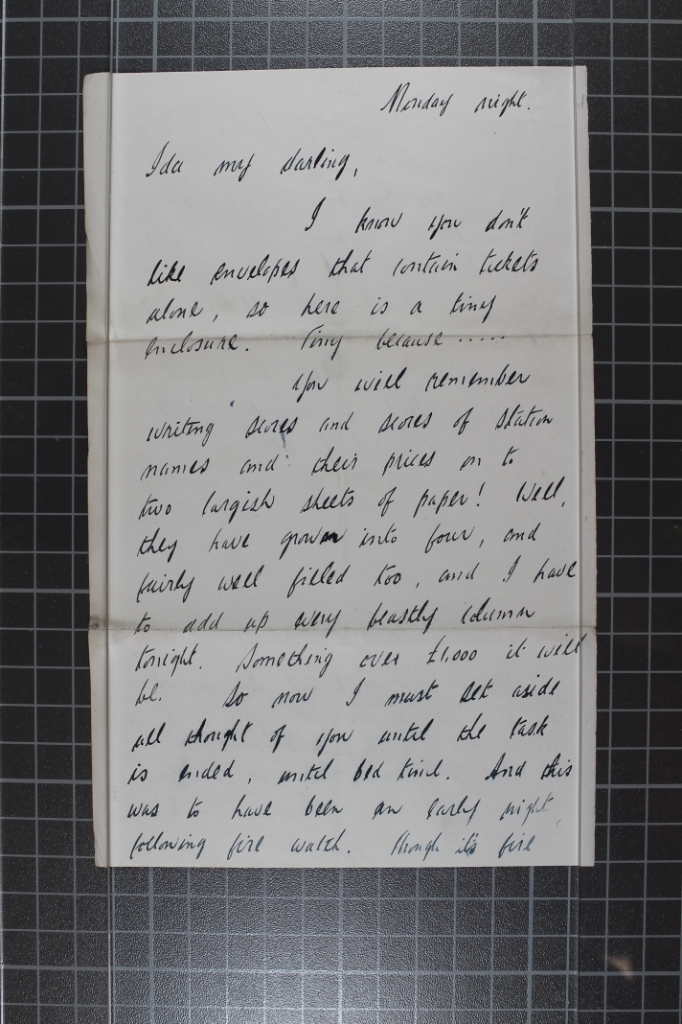 Monday night.
Ida my darling,
I know you don't
like envelopes that contain tickets
alone, so here is a tiny
enclosure. Tiny because .....
You will remember
writing scores and scores of station
names and their prices on to
two largish sheets of paper! Well,
they have grown into four, and
fairly well filled too, and I have
to add up every beastly column
tonight. Something over £1,000 it will
be. So now I must set aside
all thought of you until the task
is ended, until bed time. And this
was to have been an early night,
following fire watch. Though it's fire